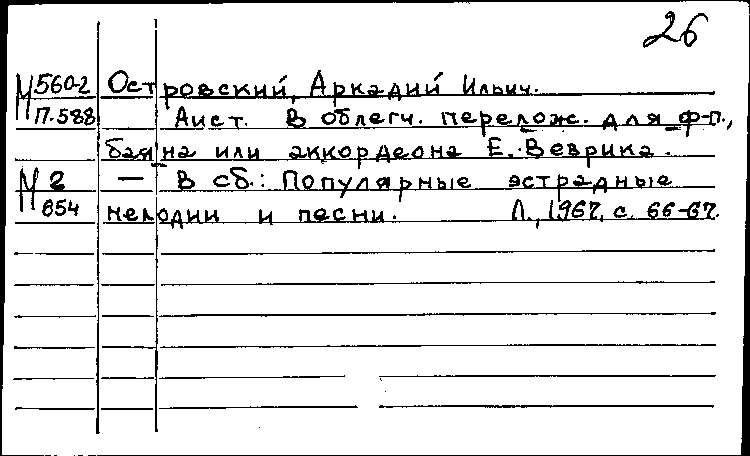 26
М 560-2 Островский, Аркадий Ильич.
П.588 Аист. В облегч. перелож. для ф-п.,
баяна или аккордеона Е. Веврика.
М 2 — В сб.: Популярные эстрадные
854 мелодии и песни. Л., 1967, с. 66-67.